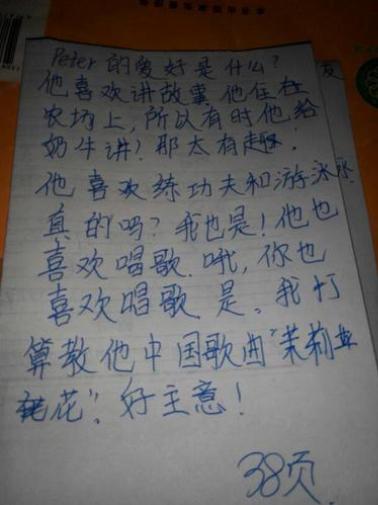 Peter的爱好是什么?
他喜欢讲故事他住在
农场上,所以有时他给
奶牛讲!那太有趣!
他喜欢练功夫和游泳
真的吗?我也是!他也
喜欢唱歌.哦,你也
喜欢唱歌.是。我打
算教他中国歌曲"茉莉
花".好主意!
38页.
友